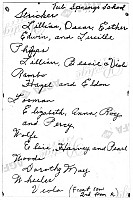 Tub Springs School
Stricker
Lillian, Oscar, Esther
Edwin, and Lucille
Phipps
Lillian, Bessie & Dick
Rambo
Hazel and Eldon
Looman
Elizabeth, Anna, Roy
and Percy
Wolfe
Elsie, Harvey and Pearl
Woods
Dorothy May
Wheeler
Viola (Front row
2nd from